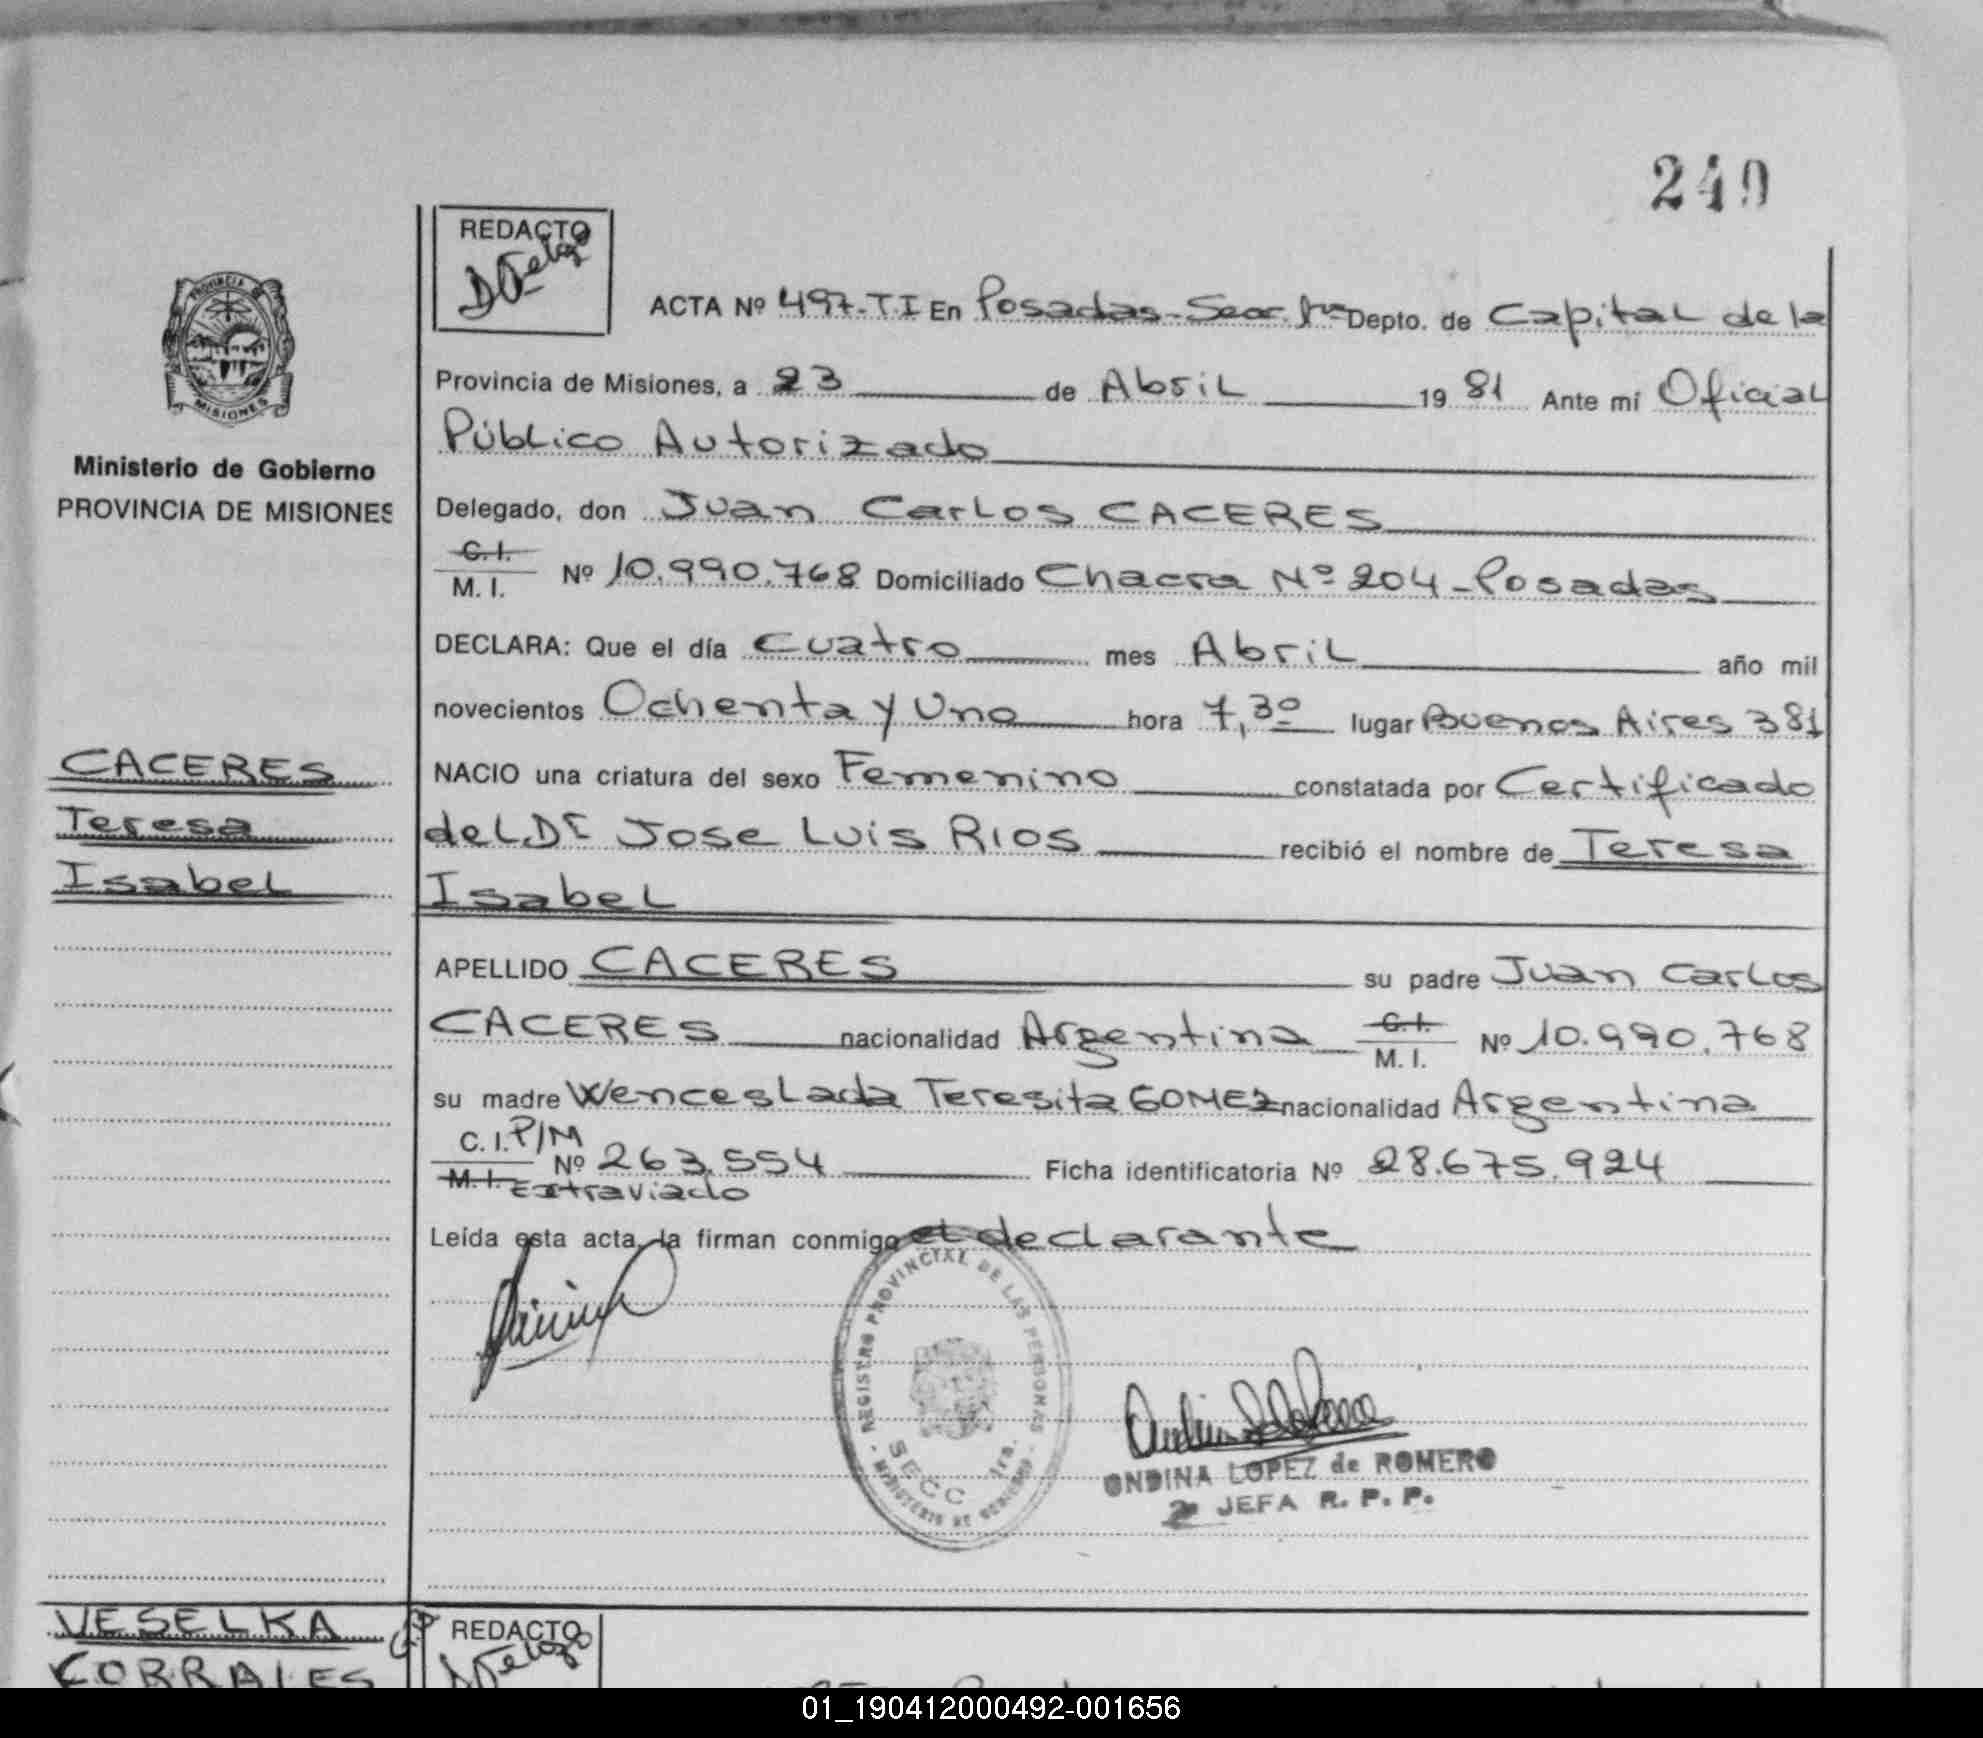 240
REDACTO
ACTA Nº 497-T.I En Posadas-Secc. 1ra Depto. de Capital de la
Provincia de Misiones, a 23 de Abril 1981 Ante mí Oficial
Público Autorizado
Delegado, don Juan Carlos CACERES
C.I.
M. I. Nº 10.990.768 Domiciliado Chacra Nº 204-Posadas
DECLARA: Que el día Cuatro mes Abril año mil
novecientos Ochenta y Uno hora 7,30 lugar Buenos Aires 381
NACIO una criatura del sexo Femenino constatada por Certificado
del Dr Jose Luis RIOS recibió el nombre de Teresa
Isabel
APELLIDO CACERES su padre Juan Carlos
CACERES nacionalidad Argentina C.I.
M. I. Nº 10.990.768
su madre Wenceslada Teresita GOMEZ nacionalidad Argentina
C. I. P/M
M.I. Nº 263.554 Ficha identificatoria Nº 28.675.924
Extraviado
Leída esta acta, la firman conmigo el declarante
REGISTRO PROVINCIAL DE LAS PERSONAS
SECC 1ra.
MINISTERIO DE GOBIERNO
ONDINA LOPEZ de ROMERO
2ª JEFA R. P. P.
PROVINCIA DE
MISIONES
Ministerio de Gobierno
PROVINCIA DE MISIONES
CACERES
Teresa
Isabel
VESELKA
CORRALES
REDACTO
01_190412000492-001656